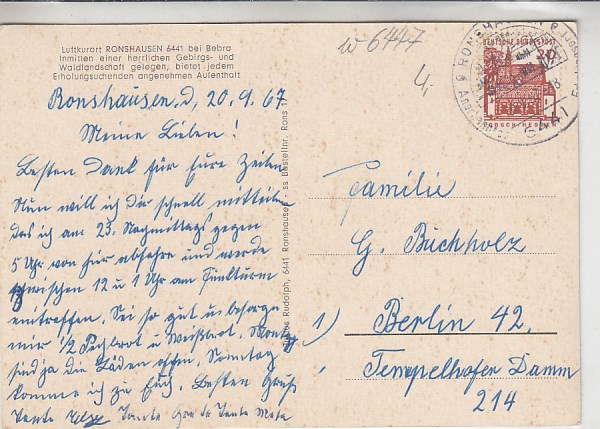 Luftkurort RONSHAUSEN 6441 bei Bebra
Inmitten einer herrlichen Gebirgs- und
Waldlandschaft gelegen, bietet jedem
Erholungsuchenden angenehmen Aufenthalt
w 6447
Ronshausen, d. 20.9.67
Meine Lieben!
Besten Dank für Eure Zeilen
Nun will ich Dir schnell mitteilen
das ich am 23. Nachmittags gegen
5 Uhr von hier abfahre und werde
zwischen 12 u 1 Uhr am Funkturm
eintreffen. Sei so gut u. besorge
mir 1/2 u Weißbrot.
sind ja die Läden offen. Sonntag
komme ich zu Euch. Besten Gruß
Tante Tante Tante Meta
Rudolph, 6441 Ronshausen · Bestellnr. Rons
RONSHAUSEN
6441
DEUTSCHE BUNDESPOST
LORSCH HESSEN
Familie
G. Buchholz
1) Berlin 42,
Tempelhofer Damm
214